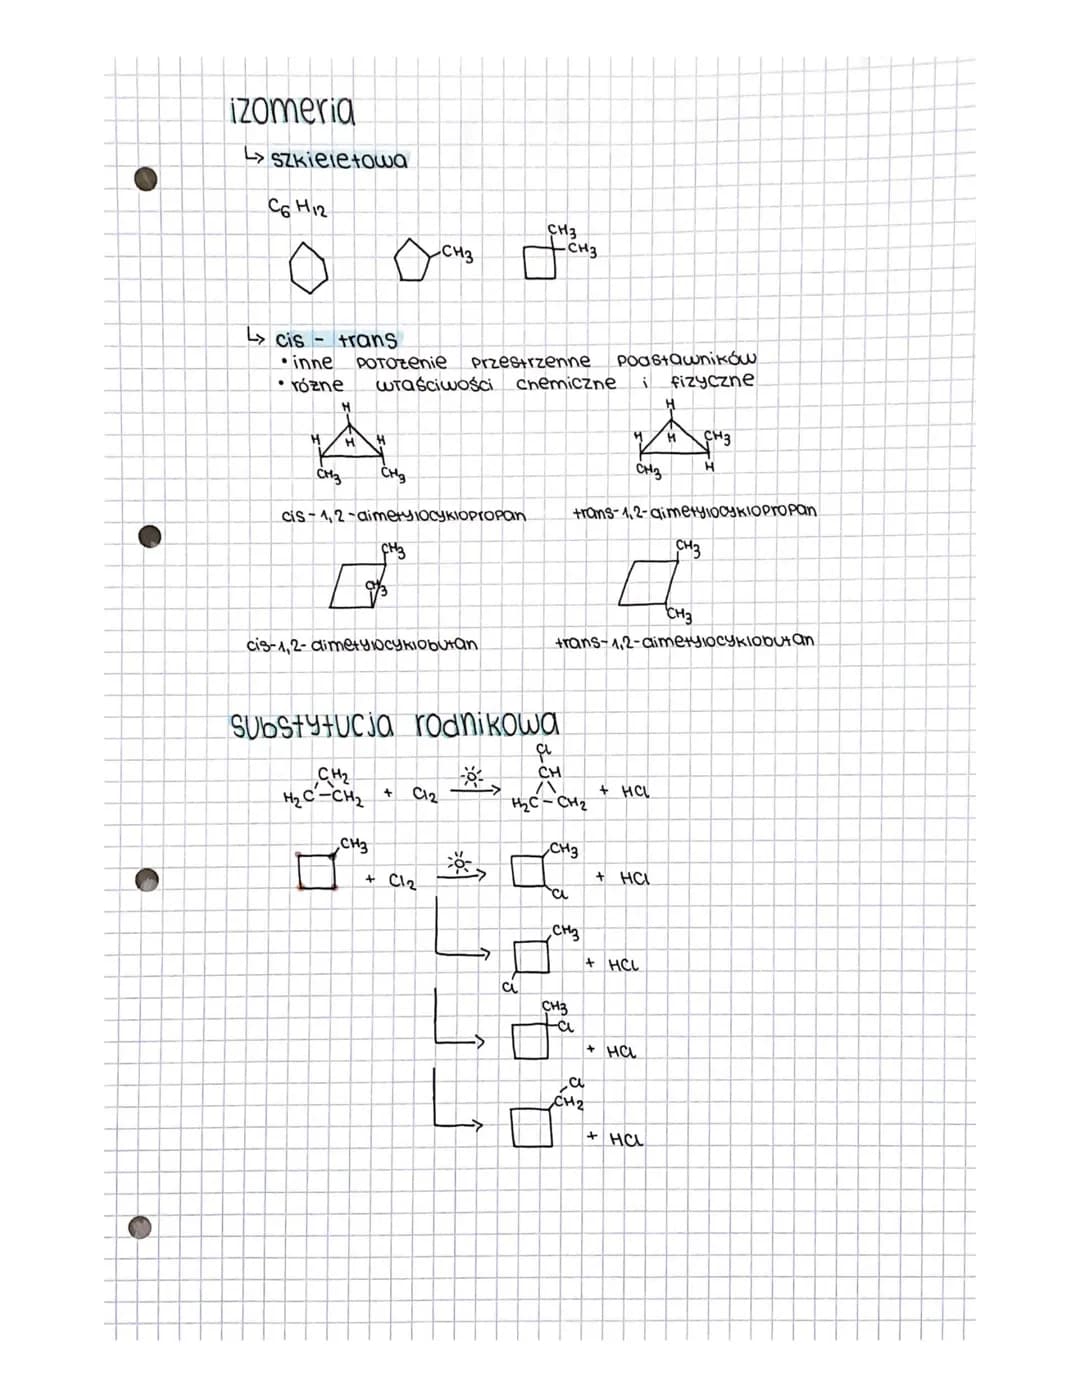 izomeria
↳ szkieletowa
C6H12
CH3
CH3
CH3
↳ cis - trans
• inne położenie przestrzenne podstawników
• różne właściwości chemiczne i fizyczne
H
H
H H H
H H CH3
CH3 CH3
CH3 H
cis-1,2-dimetylocyklopropan
trans-1,2-dimetylocyklopropan
CH3
CH3
CH3
CH3
cis-1,2-dimetylocyklobutan
trans-1,2-dimetylocyklobutan
substytucja rodnikowa
Cl
CH2
CH
H2C-CH2 + Cl2 → H2C-CH2 + HCl
CH3
CH3
+ Cl2 → + HCl
Cl
CH3
+ HCl
Cl
CH3
Cl
+ HCl
Cl
CH2
+ HCl